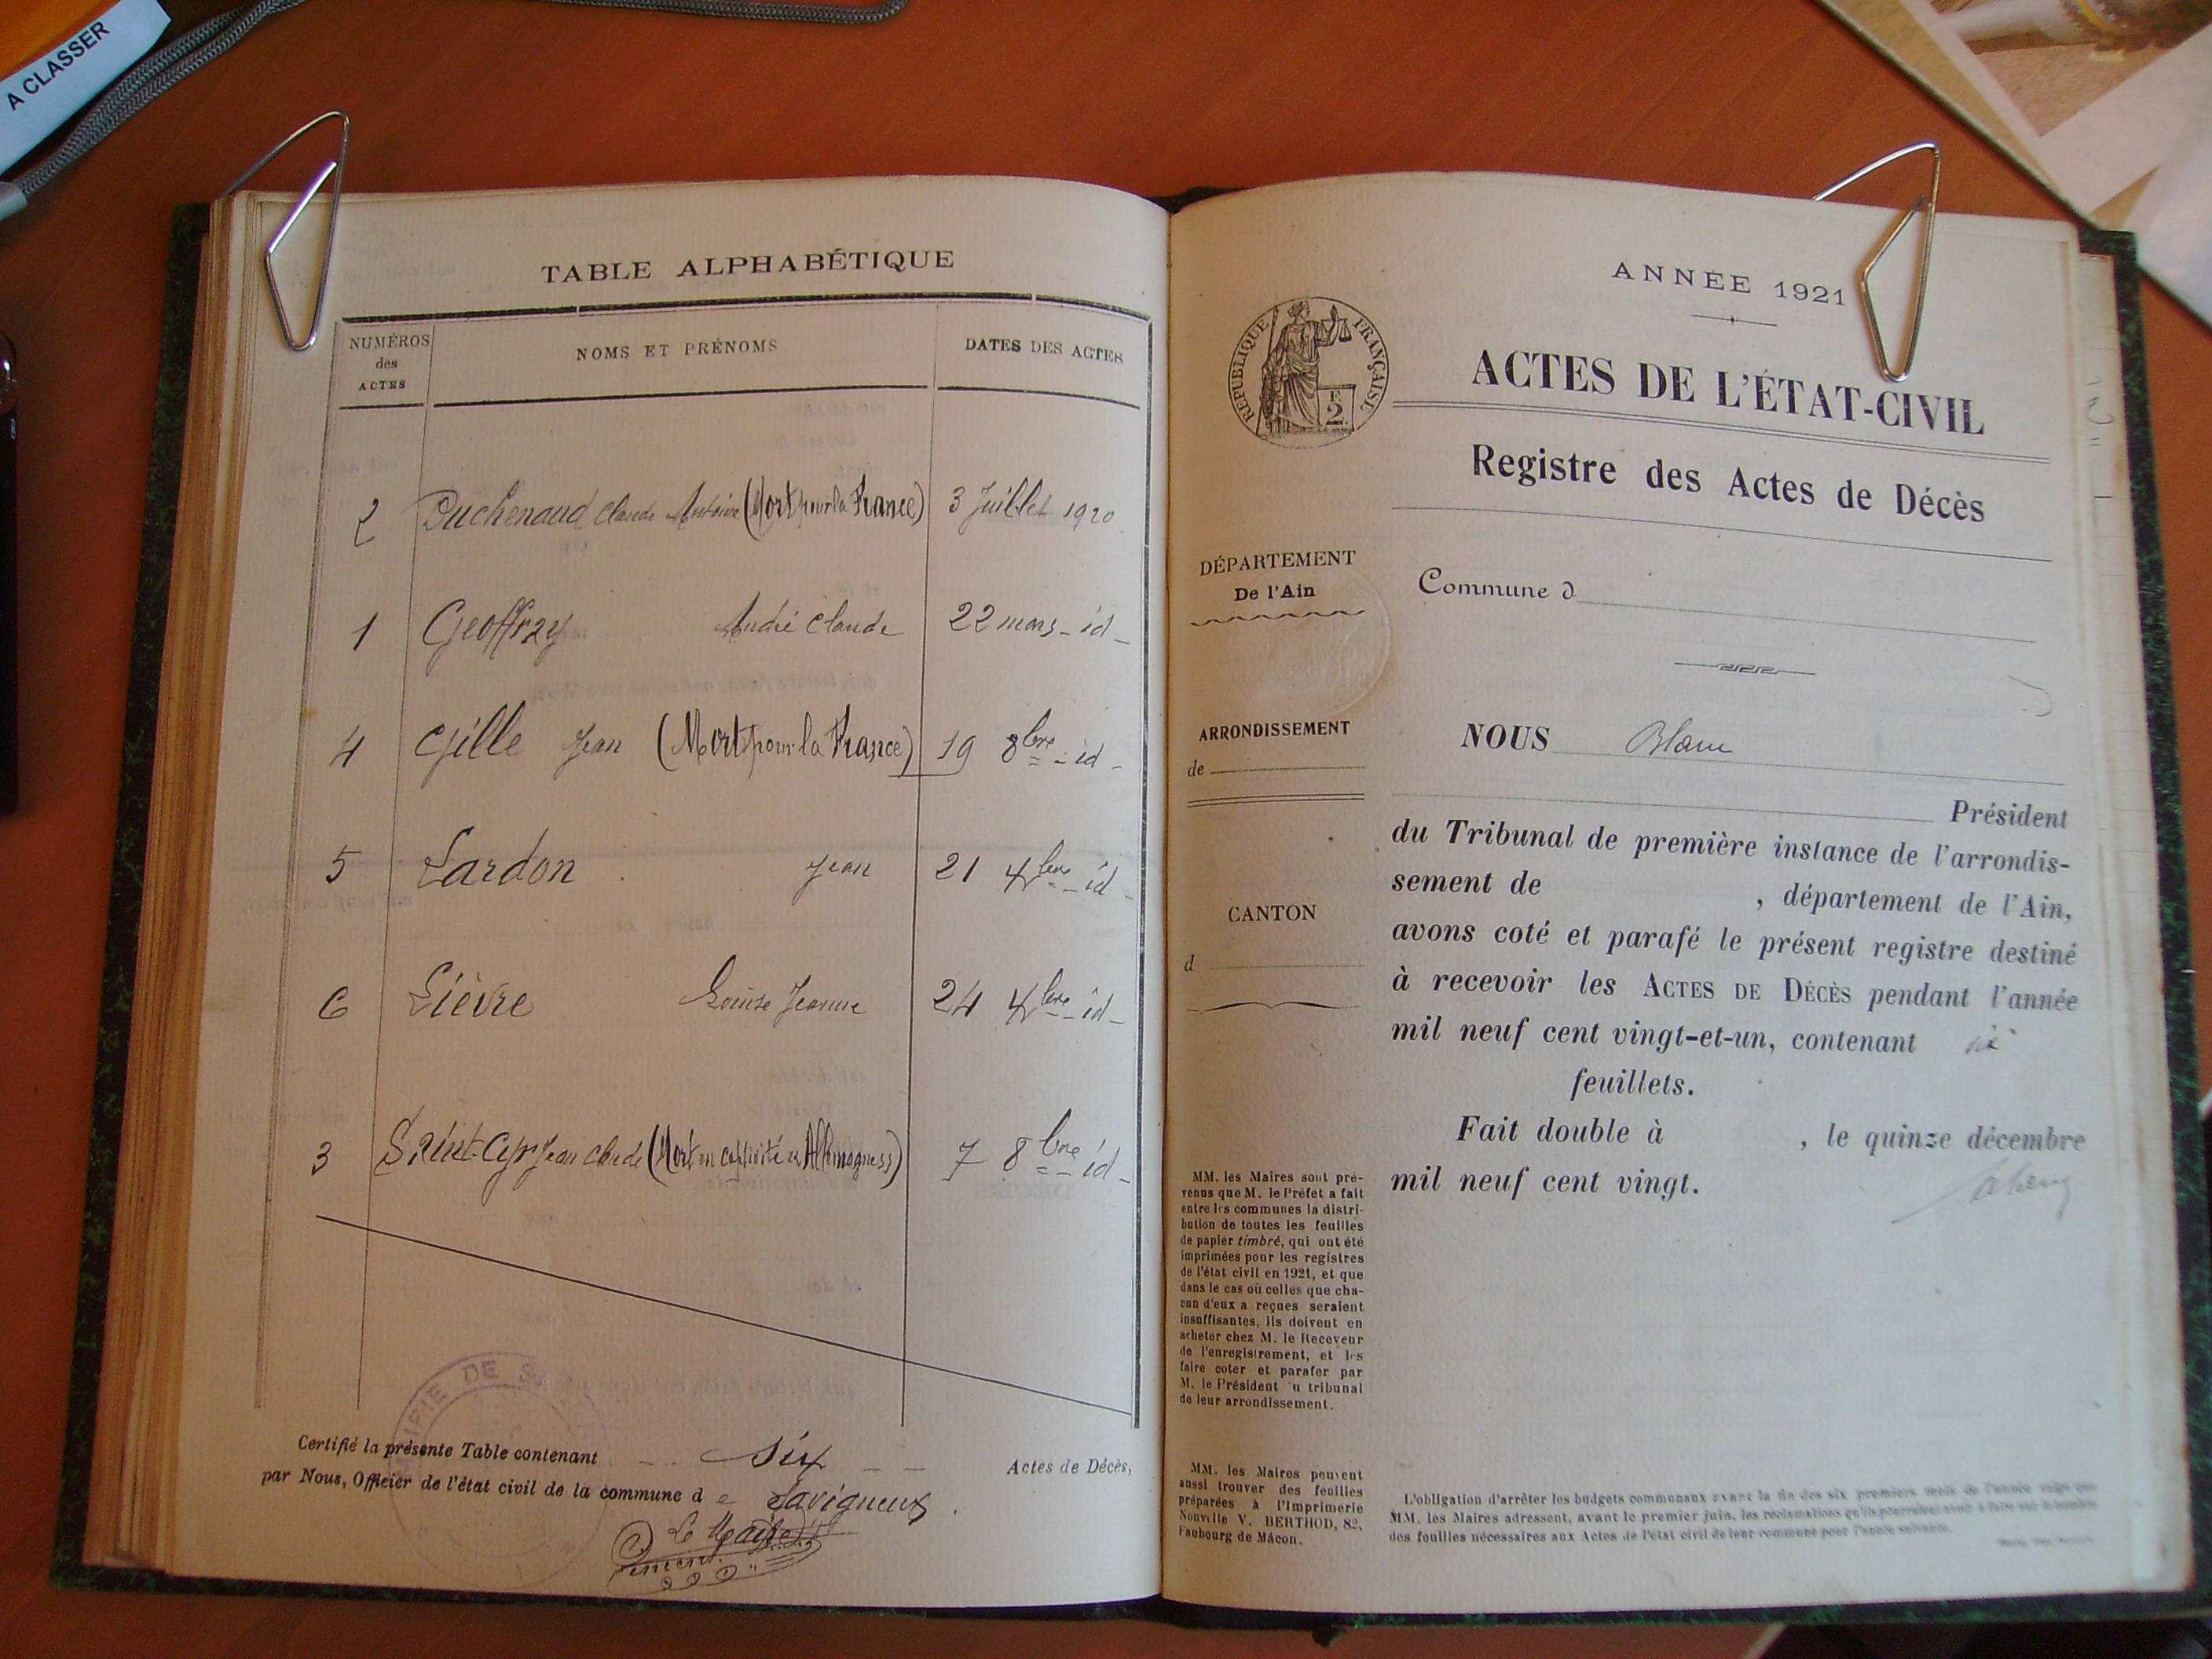 A CLASSER
TABLE ALPHABÉTIQUE
NUMÉROS
des
ACTES
NOMS ET PRÉNOMS
DATES DES ACTES
2 Duchenaud Claude Antoine (Mort pour la France) 3 Juillet 1920
1 Geoffray André Claude 22 mars - id -
4 Gille Jean (Mort pour la France) 19 8bre - id -
5 Lardon Jean 21 Xbre - id -
6 Lièvre Louise Jeanne 24 Xbre - id -
3 Saint-Cyr Jean Claude (Mort en captivité en Allemagne) 7 8bre - id -
MAIRIE DE
Certifié la présente Table contenant six Actes de Décès,
par Nous, Officier de l'état civil de la commune de Savigneux
Le Maire
ANNÉE 1921
RÉPUBLIQUE FRANÇAISE
2
ACTES DE L'ÉTAT-CIVIL
Registre des Actes de Décès
DÉPARTEMENT
De l'Ain
Commune d
ARRONDISSEMENT
de
CANTON
d
NOUS Blanc
Président
du Tribunal de première instance de l'arrondis-
sement de , département de l'Ain,
avons coté et parafé le présent registre destiné
à recevoir les ACTES DE DÉCÈS pendant l'année
mil neuf cent vingt-et-un, contenant
feuillets.
Fait double à , le quinze décembre
mil neuf cent vingt.
MM. les Maires sont pré-
venus que M. le Préfet a fait
entre les communes la distri-
bution de toutes les feuilles
de papier timbré, qui ont été
imprimées pour les registres
de l'état civil en 1921, et que
dans le cas où celles que cha-
cun d'eux a reçues seraient
insuffisantes, ils doivent en
acheter chez M. le Receveur
de l'enregistrement, et les
faire coter et parafer par
M. le Président u tribunal
de leur arrondissement.
MM. les Maires peuvent
aussi trouver des feuilles
préparées à l'Imprimerie
Nouvelle V. BERTHOD, 82,
Faubourg de Mâcon.
L'obligation d'arrêter les budgets communaux avant la fin des six premiers mois de l'année exige que
MM. les Maires adressent, avant le premier juin, les réclamations qu'ils pourraient avoir à faire sur le nombre
des feuilles nécessaires aux Actes de l'état civil de leur commune pour l'année suivante.